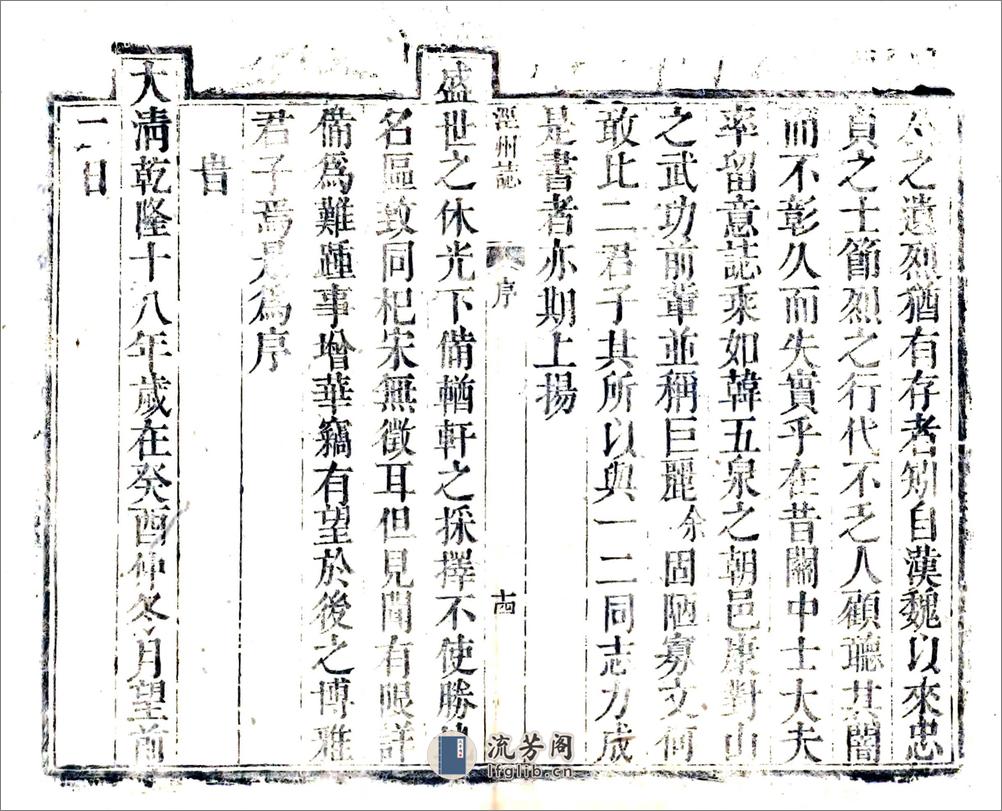 之遺烈猶有存者矧自漢魏以來忠
貞之士節烈之行代不乏人顧聽其闇
而不彰久而失實乎在昔關中士大夫
率留意誌乘如韓五泉之朝邑康對山
之武功前輩並稱巨麗余固陋寡文何
敢比二君子其所以與一二同志力成
是書者亦期上揚
涇州誌 序 十四
盛世之休光下備輶軒之採擇不使勝地
名區致同杞宋無徵耳但見聞有限詳
備爲難踵事增華竊有望於後之博雅
君子焉是為序
旹
大清乾隆十八年歲在癸酉仲冬月望前
二日
流芳阁
lfglib.cn